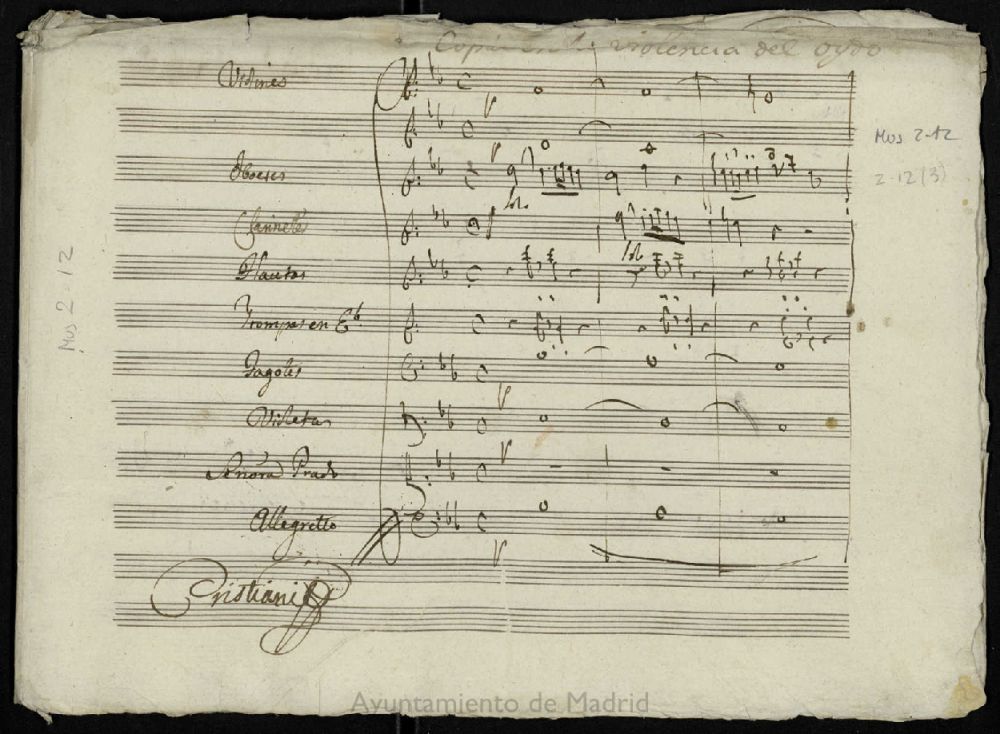 violencia del oydo
Violines
Mus 2-12
Oboeses
2-12 (3)
Sol.
Clarinetes
Sol
Mus 2-12
Flautas
Trompas en Eb.
Fagotes
Violetas
Señora Prado
Allegretto
Cristiani
Ayuntamiento de Madrid